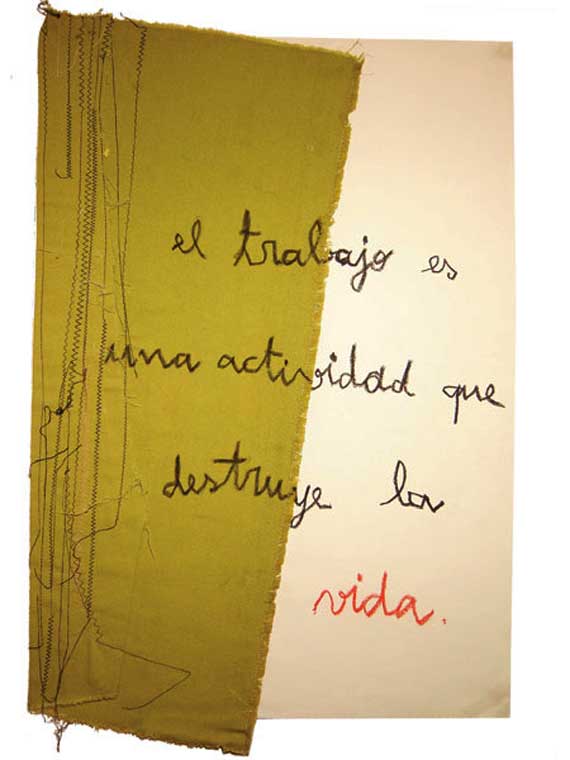 el trabajo es
una actividad que
destruye la
vida.